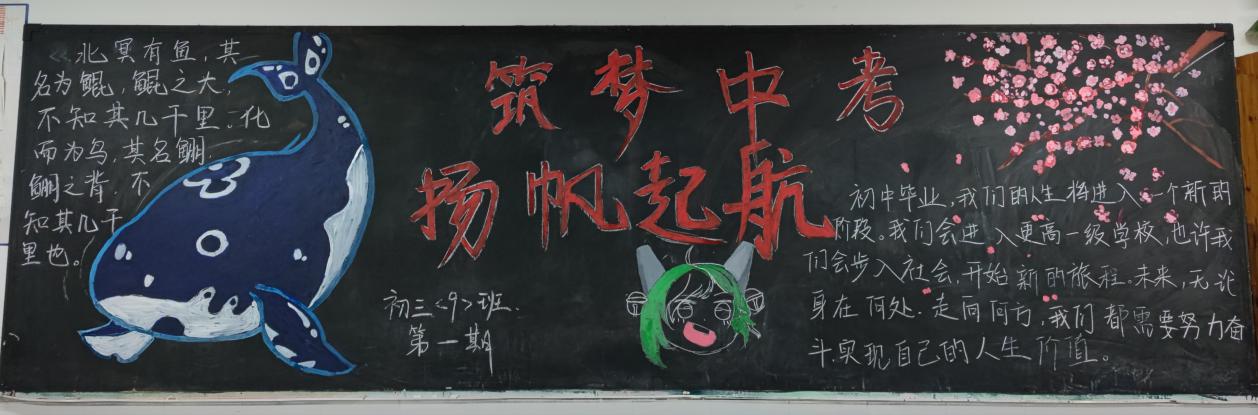 北冥有鱼，其
名为鲲，鲲之大，
不知其几千里。化
而为鸟，其名鹏，
鹏之背，不
知其几千
里也。
筑梦中考
扬帆起航
初三<9>班.
第一期
初中毕业，我们的人生将进入一个新的
阶段。我们会进入更高一级学校，也许我
们会步入社会，开始新的旅程。未来，无论
身在何处，走向何方，我们都需要努力奋
斗，实现自己的人生价值。